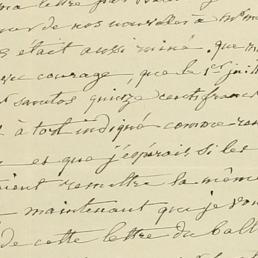 ma lettre par
de nos nouvelles à Mme
était aussi miné, que m
courage, que le 1er juill
Santos quinze cents francs
à tort indiqué comme
et que j'espérais, si les
remettre la même
maintenant que je vou
de cette lettre du ball